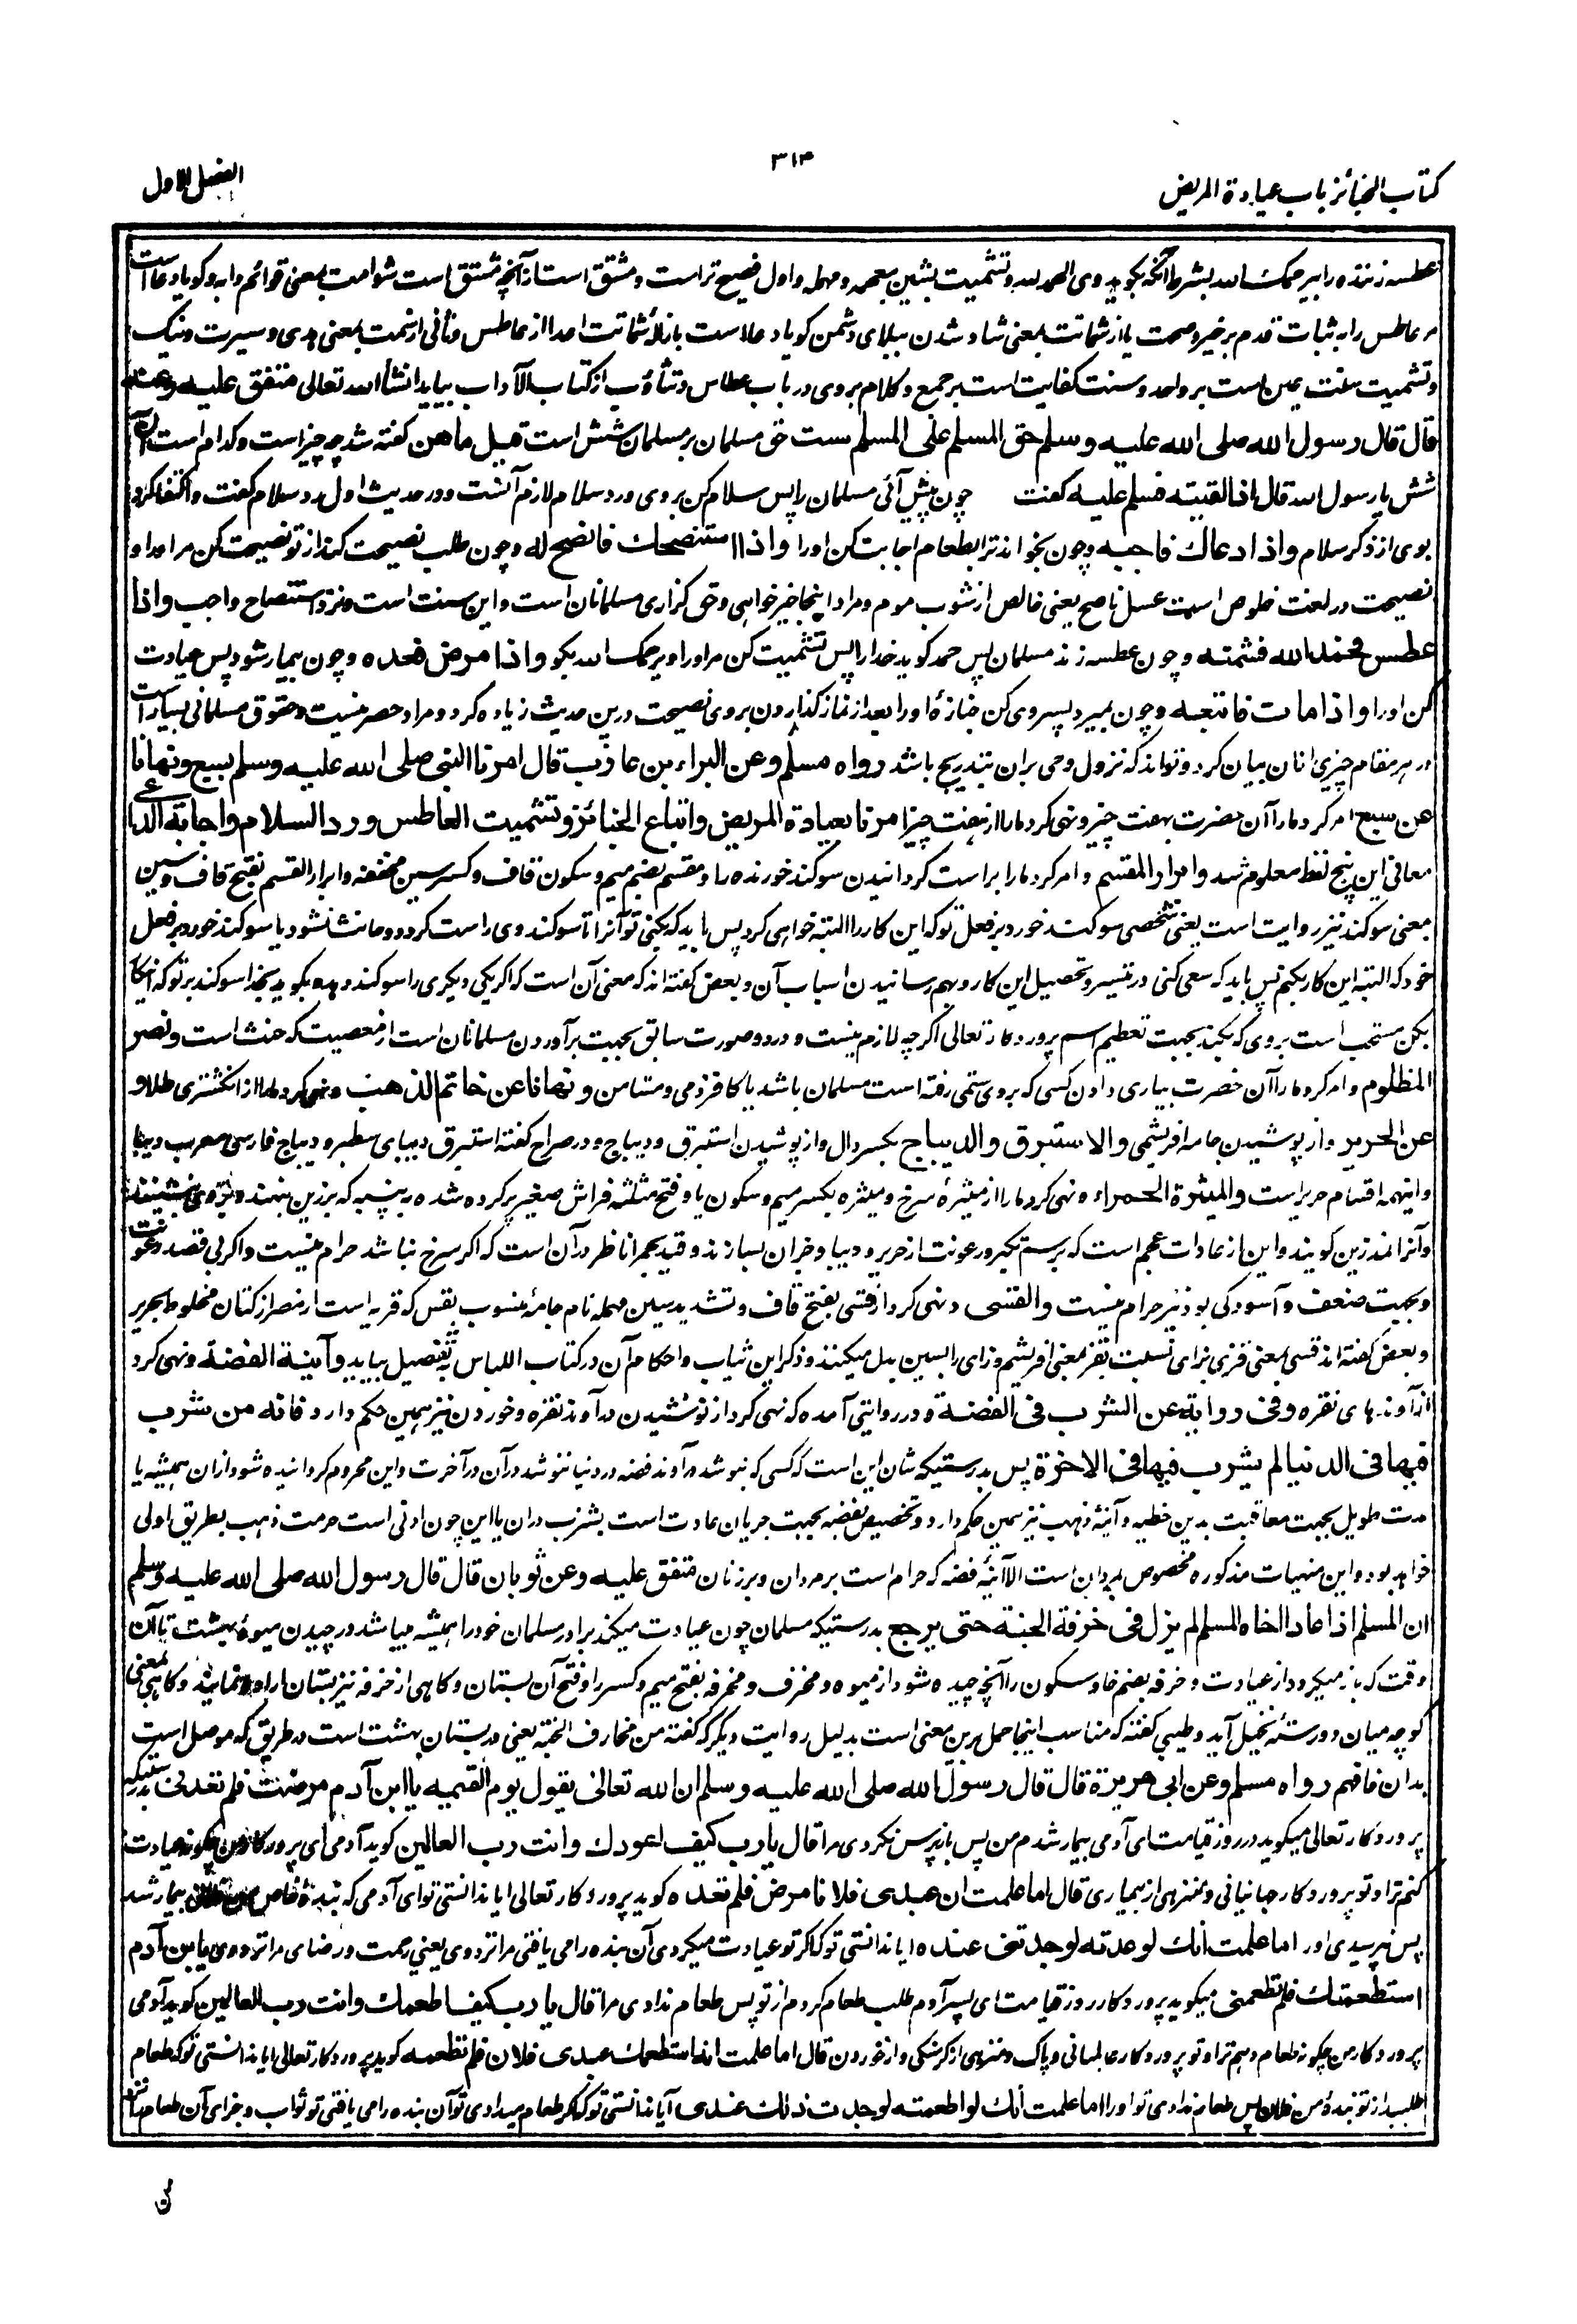 کتاب الجنائز باب عیادة المریض
۳۱۴
الفصل الاول
عطسه زننده را بیرحمک الله بشرط آنکه بگوید وی الحمد لله وتشمیت بشین معجمه ومهمله واول فصیح تر است ومشتق است از آنچه مشتق است شوامت بمعنی قوائم دابه وگویا دعا است
مر عاطس را به ثبات قدم بر خیر وصحت یا از شماتت بمعنی شاد شدن ببلای دشمن گویا دعا است بازالۀ شماتت اعدا از عاطس وثانی از سمت بمعنی هدی وسیرت ونیک
وتشمیت سنت عین است بر واحد وسنت کفایت است بر جمع وکلام بروی در باب عطاس وتثاؤب از کتاب الآداب بیاید انشاء الله تعالی متفق علیه وعنه
قال قال رسول الله صلی الله علیه وسلم حق المسلم علی المسلم ست حق مسلمان بر مسلمان شش است قیل ما هن گفته شد چه چیز است وکدام است آن
شش یا رسول الله قال اذا لقیته فسلم علیه گفت چون پیش آئی مسلمان را پس سلام کن بر وی ورد سلام لازم آنست ودر حدیث اول رد سلام گفت واکتفا کرد
بوی از ذکر سلام واذا دعاك فاجبه وچون بخواند ترا بطعام اجابت کن اورا واذا استنصحك فانصح له وچون طلب نصیحت کند از تو نصیحت کن مر او را و
نصیحت در لغت خلوص است عسل ناصح یعنی خالص از شوب موم ومراد اینجا خیر خواهی وحق گزاری مسلمانان است واین سنت است ونزد استنصاح واجب واذا
عطس فحمد الله فشمته وچون عطسه زند مسلمان پس حمد گوید خدا را پس تشمیت کن مر او را ویرحمک الله بگو واذا مرض فعده وچون بیمار شود پس عیادت
کن اورا واذا مات فاتبعه وچون بمیرد پس پیروی کن جنازۀ او را بعد از نماز گذاردن بر وی نصیحت درین حدیث زیاده کرد ومراد حصر نیست وحقوق مسلمانی بسیار است
در هر مقام چیزی از آن بیان کرد وتواند که نزول وحی بر آن بتدریج باشد رواه مسلم وعن البراء بن عازب قال امرنا النبی صلی الله علیه وسلم بسبع ونهانا
عن سبع امر کرد ما را آن حضرت بهفت چیز ونهی کرد ما را از هفت چیز امرنا بعیادة المریض واتباع الجنائز وتشمیت العاطس ورد السلام واجابة الداعی
معانی این پنج لفظ معلوم شد وابرار المقسم وامر کرد ما را براست گردانیدن سوگند خورنده را ومقسم بضم میم وسکون قاف وکسر سین مخففه وابرار القسم بفتح قاف وسین
بمعنی سوگند نیز روایت است یعنی شخصی سوگند خورد بر فعل تو که این کار را البته خواهی کرد پس باید که بکنی تو آنرا تا سوگند وی راست گردد وحانث نشود یا سوگند خورد بر فعل
خود که البته این کار بکنم پس باید که سعی کنی در تیسیر وتحصیل این کار وبهم رسانیدن اسباب آن وبعض گفته اند که معنی آن است که اگر یکی دیگری را سوگند دهد بگوید بخدا سوگند بر تو که این کار
بکن مستحب است بر وی که بکند بجهت تعظیم اسم پروردگار تعالی اگر چه لازم نیست ودر دو صورت سابق بجهت برآوردن مسلمانان است از معصیت که حنث است ونصر
المظلوم وامر کرد ما را آن حضرت بیاری دادن کسی که بر وی ستمی رفته است مسلمان باشد یا کافر ذمی ومستامن ونهانا عن خاتم الذهب ونهی کرد ما را از انگشتری طلا و
عن الحریر واز پوشیدن جامه افریشمی والاستبرق والدیباج بکسر دال واز پوشیدن استبرق ودیباج ودر صراح گفته استبرق دیبای سطبر ودیباج فارسی معرب دیبا
واینهمه اقسام حریر است والمیثرة الحمراء ونهی کرد ما را از میثرۀ سرخ ومیثره بکسر میم وسکون یا وفتح مثلثه فراش صغیر پر کرده شده به پنبه که بر زین بنهند
وآنرا نمد زین گویند واین از عادات عجم است که برسم تکبر ورعونت از حریر ودیبا وجز آن بسازند وقید بحمرا ناظر در آن است که اگر سرخ نباشد حرام نیست واگر بی قصد رعونت
وبجهت ضعف وآسودگی بود نیز حرام نیست والقسی ونهی کرد از قسی بفتح قاف وتشدید سین مهمله نام جامۀ منسوب بقس که قریه است از مصر از کتان مخلوط بحریر
وبعض گفته اند قسی بمعنی قزی بزای نسبت بقز بمعنی افریشم وزای را بسین بدل میکنند وذکر این ثیاب واحکام آن در کتاب اللباس به تفصیل بیاید وآنیة الفضة ونهی کرد
از آوندهای نقره وفی روایة عن الشرب فی الفضة ودر روایتی آمده که نهی کرد از نوشیدن در آوند نقره وخوردن نیز همین حکم دارد فانه من شرب
فیها فی الدنیا لم یشرب فیها فی الاخرة پس بدرستیکه شان این است که کسی که نوشد در آوند فضه در دنیا ننوشد در آن در آخرت واین محروم گردانیده شود از ان همیشه یا
مدت طویل بجهت معاقبت بدین خطیه وآنیۀ ذهب نیز همین حکم دارد وتخصیص بفضه بجهت جریان عادت است بشرب در ان یا این چون ادنی است حرمت ذهب بطریق اولی
خواهد بود واین منهیات مذکوره مخصوص بمردان است الا آنیۀ فضه که حرام است بر مردان وبر زنان متفق علیه وعن ثوبان قال قال رسول الله صلی الله علیه وسلم
ان المسلم اذا عاد اخاه المسلم لم یزل فی خرفة الجنة حتی یرجع بدرستیکه مسلمان چون عیادت میکند برادر مسلمان خود را همیشه میباشد در چیدن میوۀ بهشت تا آن
وقت که باز میگردد از عیادت وخرفه بضم خا وسکون را آنچه چیده شود از میوه ومخرف ومخرفه بفتح میم وکسر را وفتح آن بستان وگاهی از خرفه نیز بستان اراده نمایند وگاهی بمعنی
کوچه میان دو رستۀ نخیل آید وطیبی گفته که مناسب اینجا حمل برین معنی است بدلیل روایت دیگر که گفته من مخارف الجنة یعنی در بستان بهشت است در طریق که موصل است
بدان فافهم رواه مسلم وعن ابی هریرة قال قال رسول الله صلی الله علیه وسلم ان الله تعالی یقول یوم القیمة یا ابن آدم مرضت فلم تعدنی بدرستیکه
پروردگار تعالی میگوید در روز قیامت ای آدمی بیمار شدم من پس باز پرس نکردی مرا قال یا رب کیف اعودك وانت رب العالمین گوید آدمی ای پروردگار من چگونه عیادت
کنم ترا وتو پروردگار جهانیانی ومنزهی از بیماری قال اما علمت ان عبدی فلانا مرض فلم تعده گوید پروردگار تعالی ایا ندانستی تو ای آدمی که بندۀ خاص من بیمار شد
پس نپرسیدی او را اما علمت انك لو عدته لوجدتنی عنده ایا ندانستی تو که اگر تو عیادت میکردی آن بنده را می یافتی مرا نزد وی یعنی رحمت ورضای مرا نزد وی یا بن آدم
استطعمتك فلم تطعمنی میگوید پروردگار روز قیامت ای پسر آدم طلب طعام کردم از تو پس طعام ندادی مرا قال یا رب کیف اطعمك وانت رب العالمین گوید آدمی
پروردگار من چگونه طعام دهم ترا وتو پروردگار عالمیانی وپاک ومنزهی از گرسنگی واز خوردن قال اما علمت انه استطعمك عبدی فلان فلم تطعمه گوید پروردگار تعالی ایا ندانستی تو که طعام
طلبید از تو بندۀ من فلان پس طعام ندادی تو او را اما علمت انك لو اطعمته لوجدت ذلك عندی آیا ندانستی تو که اگر طعام میدادی تو آن بنده را می یافتی تو ثواب وجزای آن طعام نزد
من